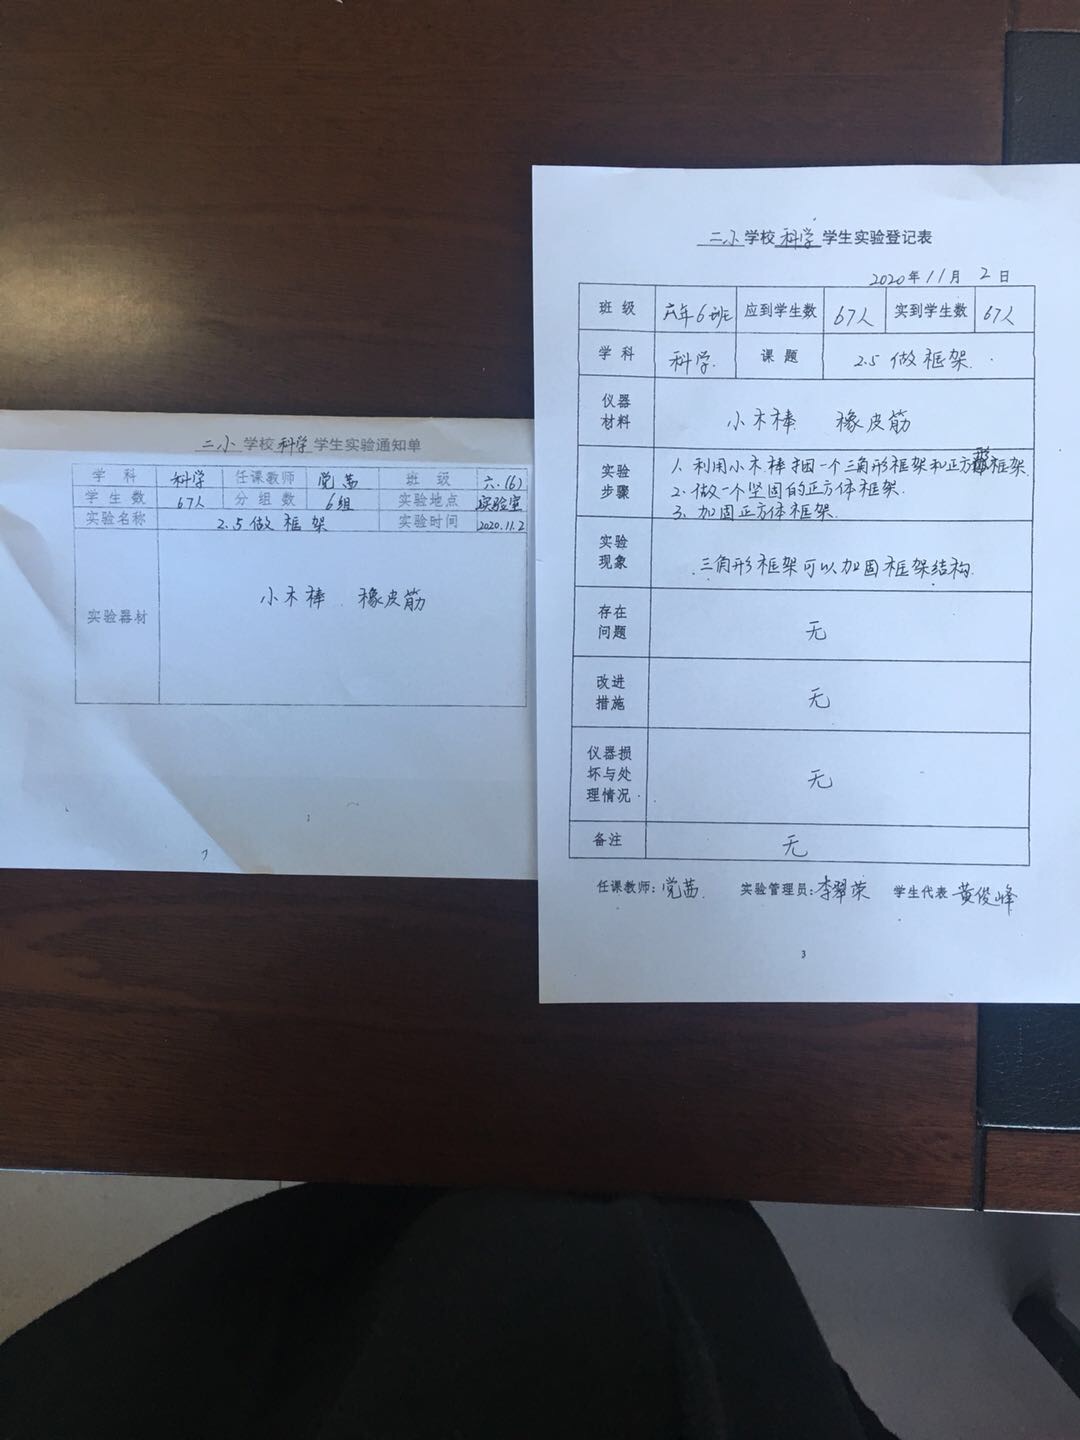 二小学校科学学生实验通知单
学科 科学 任课教师 党茜 班级 六.(6)
学生数 67人 分组数 6组 实验地点 实验室
实验名称 2.5做框架 实验时间 2020.11.2
实验器材 小木棒 橡皮筋
二小学校科学学生实验登记表
2020年11月2日
班级 六年6班 应到学生数 67人 实到学生数 67人
学科 科学 课题 2.5 做框架
仪器
材料
小木棒 橡皮筋
实验
步骤
1、利用小木棒捆一个三角形框架和正方形框架.
2.做一个坚固的正方体框架.
3、加固正方体框架.
实验
现象
三角形框架可以加固框架结构.
存在
问题
无
改进
措施
无
仪器损
坏与处
理情况
无
备注 无
任课教师:党茜 实验管理员:李翠荣 学生代表 黄俊峰
3